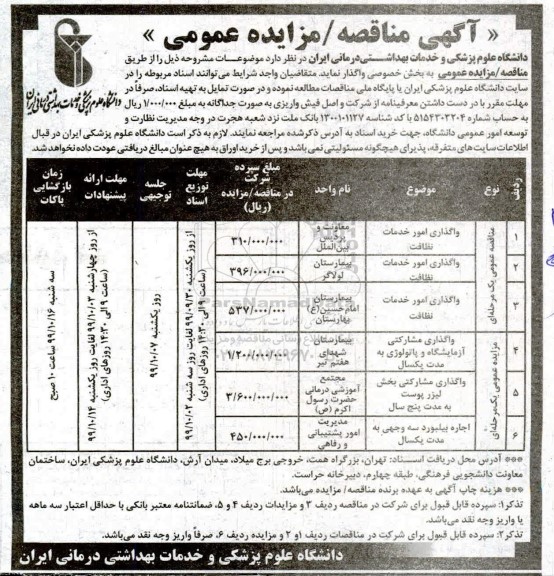 « آگهی مناقصه/مزایده عمومی »
دانشگاه علوم پزشکی و خدمات بهداشتی درمانی ایران
دانشگاه علوم پزشکی و خدمات بهداشتی‌درمانی ایران در نظر دارد موضوعات مشروحه ذیل را از طریق
مناقصه/مزایده عمومی به بخش خصوصی واگذار نماید. متقاضیان واجد شرایط می‌توانند اسناد مربوطه را در
سایت دانشگاه علوم پزشکی ایران یا پایگاه ملی مناقصات مطالعه نموده و در صورت تمایل به تهیه اسناد، صرفاً در
مهلت مقرر با در دست داشتن معرفینامه از شرکت و اصل فیش واریزی به صورت جداگانه به مبلغ ۱/۰۰۰/۰۰۰ ریال
به حساب شماره ۵۱۵۴۳۰۳۲۰۴ با کد شناسه ۱۳۰۰۱۰۱۱۲۷ بانک ملت نزد شعبه هجرت در وجه مدیریت نظارت و
توسعه امور عمومی دانشگاه، جهت خرید اسناد به آدرس ذکرشده مراجعه نمایند. لازم به ذکر است دانشگاه علوم پزشکی ایران در قبال
اطلاعات سایت‌های متفرقه، پذیرای هیچگونه مسئولیتی نمی‌باشد و پس از خرید اوراق به هیچ عنوان مبالغ دریافتی عودت داده نخواهد شد.
ردیف | نوع | موضوع | نام واحد | مبلغ سپرده شرکت در مناقصه/مزایده (ریال) | مهلت توزیع اسناد | جلسه توجیهی | مهلت ارائه پیشنهادات | زمان بازگشایی پاکات
مناقصه عمومی یک مرحله‌ای
۱ | واگذاری امور خدمات نظافت | معاونت و پردیس بین‌الملل | ۳۱۰/۰۰۰/۰۰۰
۲ | واگذاری امور خدمات نظافت | بیمارستان لولاگر | ۳۹۶/۰۰۰/۰۰۰
۳ | واگذاری امور خدمات نظافت | بیمارستان امام حسین(ع) بهارستان | ۵۳۷/۰۰۰/۰۰۰
مزایده عمومی یک مرحله‌ای
۴ | واگذاری مشارکتی آزمایشگاه و پاتولوژی به مدت یکسال | بیمارستان شهدای هفتم تیر | ۱/۲۰۰/۰۰۰/۰۰۰
۵ | واگذاری مشارکتی بخش لیزر پوست به مدت پنج سال | مجتمع آموزشی درمانی حضرت رسول اکرم (ص) | ۳/۶۰۰/۰۰۰/۰۰۰
۶ | اجاره بیلبورد سه وجهی به مدت یکسال | مدیریت امور پشتیبانی و رفاهی | ۴۵۰/۰۰۰/۰۰۰
از روز یکشنبه ۹۹/۰۹/۳۰ لغایت روز سه شنبه ۹۹/۱۰/۰۲
(ساعت ۹ الی ۱۴:۳۰ روزهای اداری)
روز یکشنبه ۹۹/۱۰/۰۷
از روز چهارشنبه ۹۹/۱۰/۰۳ لغایت روز یکشنبه ۹۹/۱۰/۱۴
(ساعت ۹ الی ۱۴:۳۰ روزهای اداری)
سه شنبه ۹۹/۱۰/۱۶ ساعت ۱۰ صبح
*** آدرس محل دریافت اسناد: تهران، بزرگراه همت، خروجی برج میلاد، میدان آرش، دانشگاه علوم پزشکی ایران، ساختمان
معاونت دانشجویی فرهنگی، طبقه چهارم، دبیرخانه حراست.
*** هزینه چاپ آگهی به عهده برنده مناقصه/ مزایده می‌باشد.
تذکر۱: سپرده قابل قبول برای شرکت در مناقصه ردیف ۳ و مزایدات ردیف ۴ و ۵، ضمانتنامه معتبر بانکی با حداقل اعتبار سه ماهه
یا واریز وجه نقد می‌باشد.
تذکر۲: سپرده قابل قبول برای شرکت در مناقصات ردیف ۱و ۲ و مزایده ردیف ۶، صرفاً واریز وجه نقد می‌باشد.
دانشگاه علوم پزشکی و خدمات بهداشتی درمانی ایران